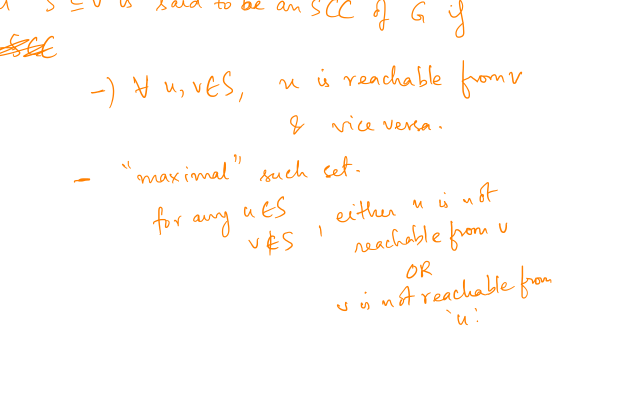 S ⊆ V is said to be an SCC of G if
-) ∀ u, v ∈ S, u is reachable from v
& vice versa.
- "maximal" such set.
for any u ∈ S
v ∉ S , either u is not
reachable from v
OR
v is not reachable from
'u'.